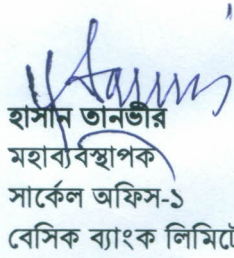 হাসান তানভীর
মহাব্যবস্থাপক
সার্কেল অফিস-১
বেসিক ব্যাংক লিমিটে